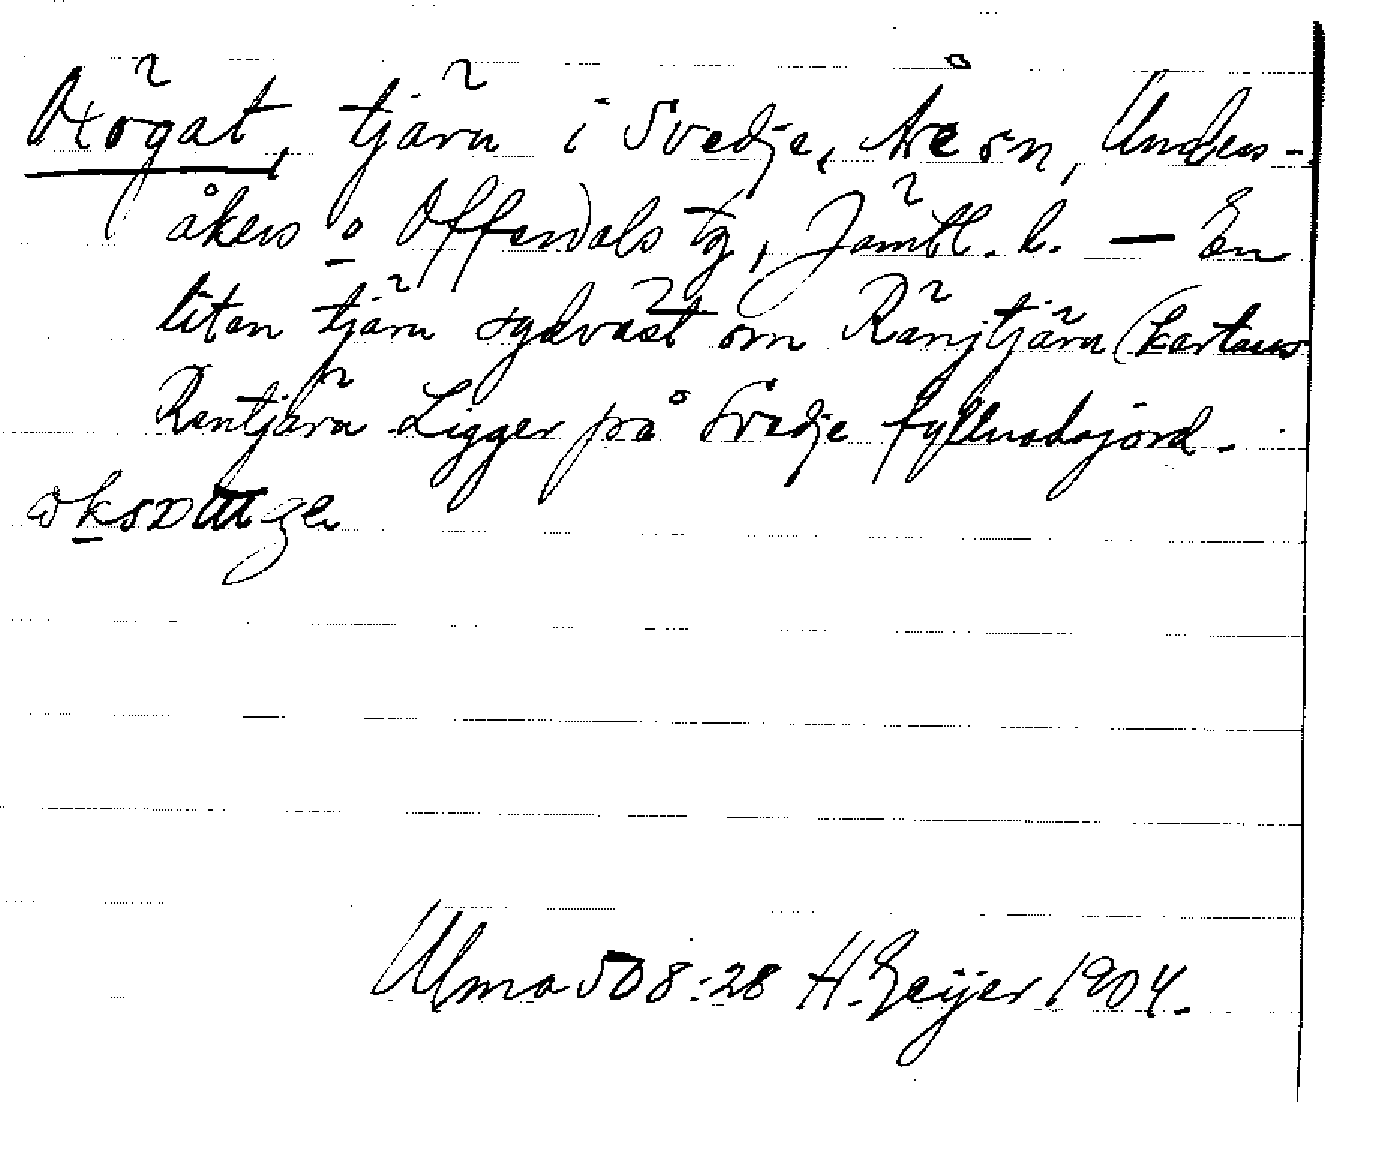 Oxögat, tjärn i Svedje, Åre sn, Unders-
åkers o Offerdals tg, Jämtl. l. — En
liten tjärn sydväst om Ränjtjärn (kartans
Rentjärn Ligger på Svedje fyllnadsjord.
Ulma 508:28 H. Geijer 1904.